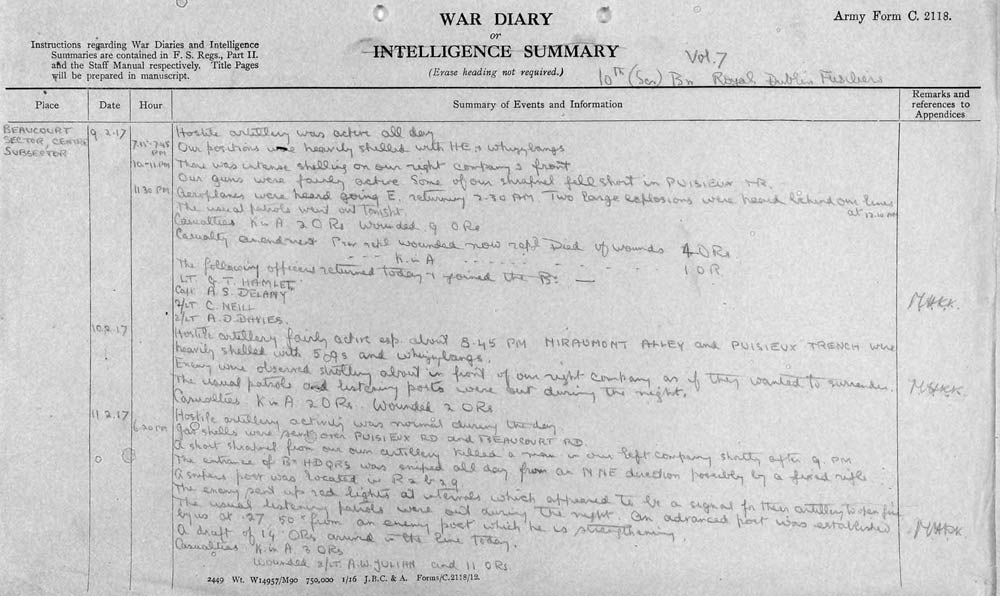 WAR DIARY
or
INTELLIGENCE SUMMARY
(Erase heading not required.)
Army Form C. 2118.
Instructions regarding War Diaries and Intelligence
Summaries are contained in F. S. Regs., Part II.
and the Staff Manual respectively. Title Pages
will be prepared in manuscript.
Vol. 7
10th (Ser) Bn Royal Dublin Fusiliers
Place Date Hour Summary of Events and Information Remarks and references to Appendices
BEAUCOURT SECTOR, CENTRE SUBSECTOR
9.2.17 Hostile artillery was active all day
7.15-7.45 PM Our positions were heavily shelled with HE & whizzbangs
10-11 PM There was intense shelling on our right company's front
Our guns were fairly active. Some of our shrapnel fell short in PUISIEUX TR.
11.30 PM Aeroplanes were heard going E. returning 2.30 AM Two large explosions were heard behind our lines
at 12.10 AM
The usual patrols went out tonight.
Casualties K in A 2 ORs Wounded 9 ORs
Casualty amendment Prev repd wounded now repd Died of wounds 4 ORs
- - K in A - - 1 OR.
The following officers returned today & joined the Bn: —
LT. G T. HAMLET
Capt A. S. DELANY
2/LT C. NEILL
2/LT A. D. DAVIES.
10.2.17 Hostile artillery fairly active esp. about 8.45 PM MIRAUMONT ALLEY and PUISIEUX TRENCH were
heavily shelled with 5.9s and whizzbangs.
Enemy were observed strolling about in front of our right company, as if they wanted to surrender.
The usual patrols and listening posts were out during the night.
Casualties K in A 2 ORs. Wounded 2 ORs
11.2.17 Hostile artillery activity was normal during the day.
6.20 PM Gas shells were sent over PUISIEUX RD and BEAUCOURT RD.
A short shrapnel from our own artillery killed a man in our left company shortly after 9 PM
The entrance of Bn HDQRS was sniped all day from an NNE direction possibly by a fixed rifle
A snipers post was located in R 2 b 2.9
The enemy sent up red lights at intervals which appeared to be a signal for their artillery to open fire
The usual listening patrols were out during the night. An advanced post was established
by us at .27 50x from an enemy post which he is strengthening.
A draft of 14 ORs arrived in the line today.
Casualties K in A. 3 ORs
Wounded 2/LT. A.W. JULIAN and 11 ORs.
2449 Wt. W14957/M90 750,000 1/16 J.B.C. & A. Forms/C.2118/12.